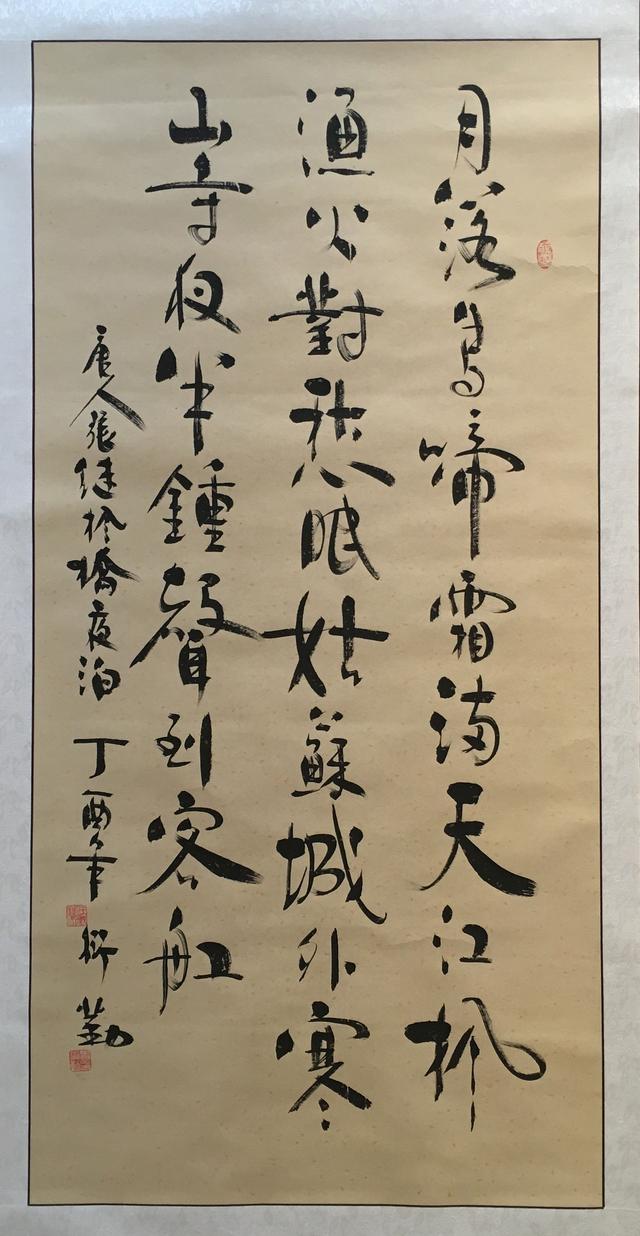 月落烏啼霜滿天江楓
漁火對愁眠姑蘇城外寒
山寺夜半鍾聲到客舡
唐人張继楓橋夜泊 丁酉年 勤